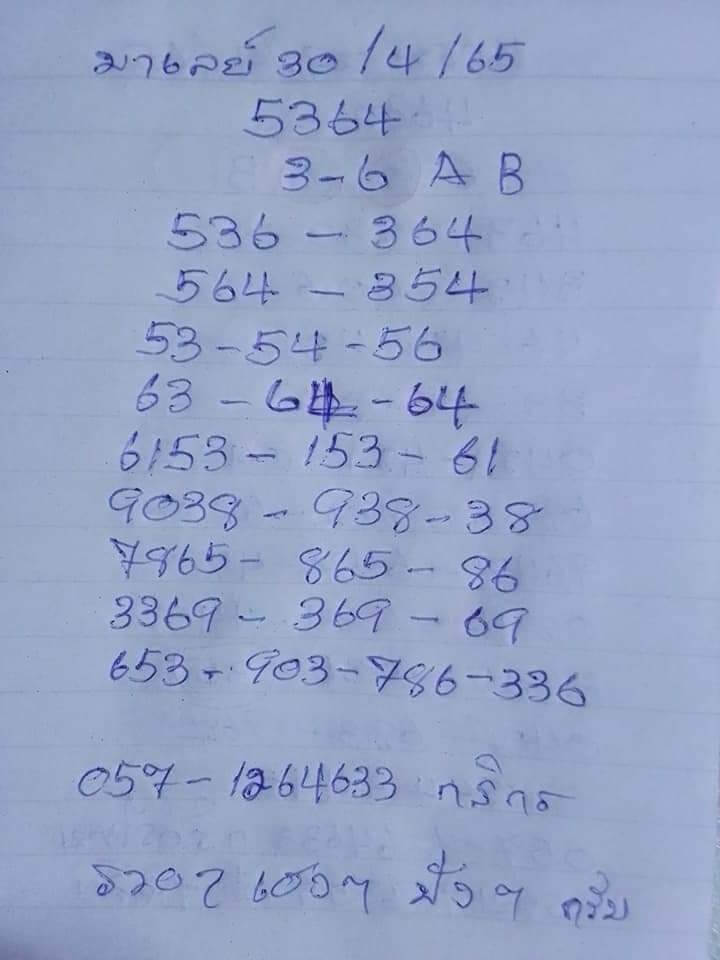 มาเลย์ 30/4/65
5364
3-6 A B
536 - 364
564 - 354
53 - 54 - 56
63 - 64 - 64
6153 - 153 - 61
9038 - 938 - 38
7865 - 865 - 86
3369 - 369 - 69
653 - 903 - 786 - 336
057 - 1264633 กสิกร
รวยๆ เฮงๆ ปังๆ ครับ